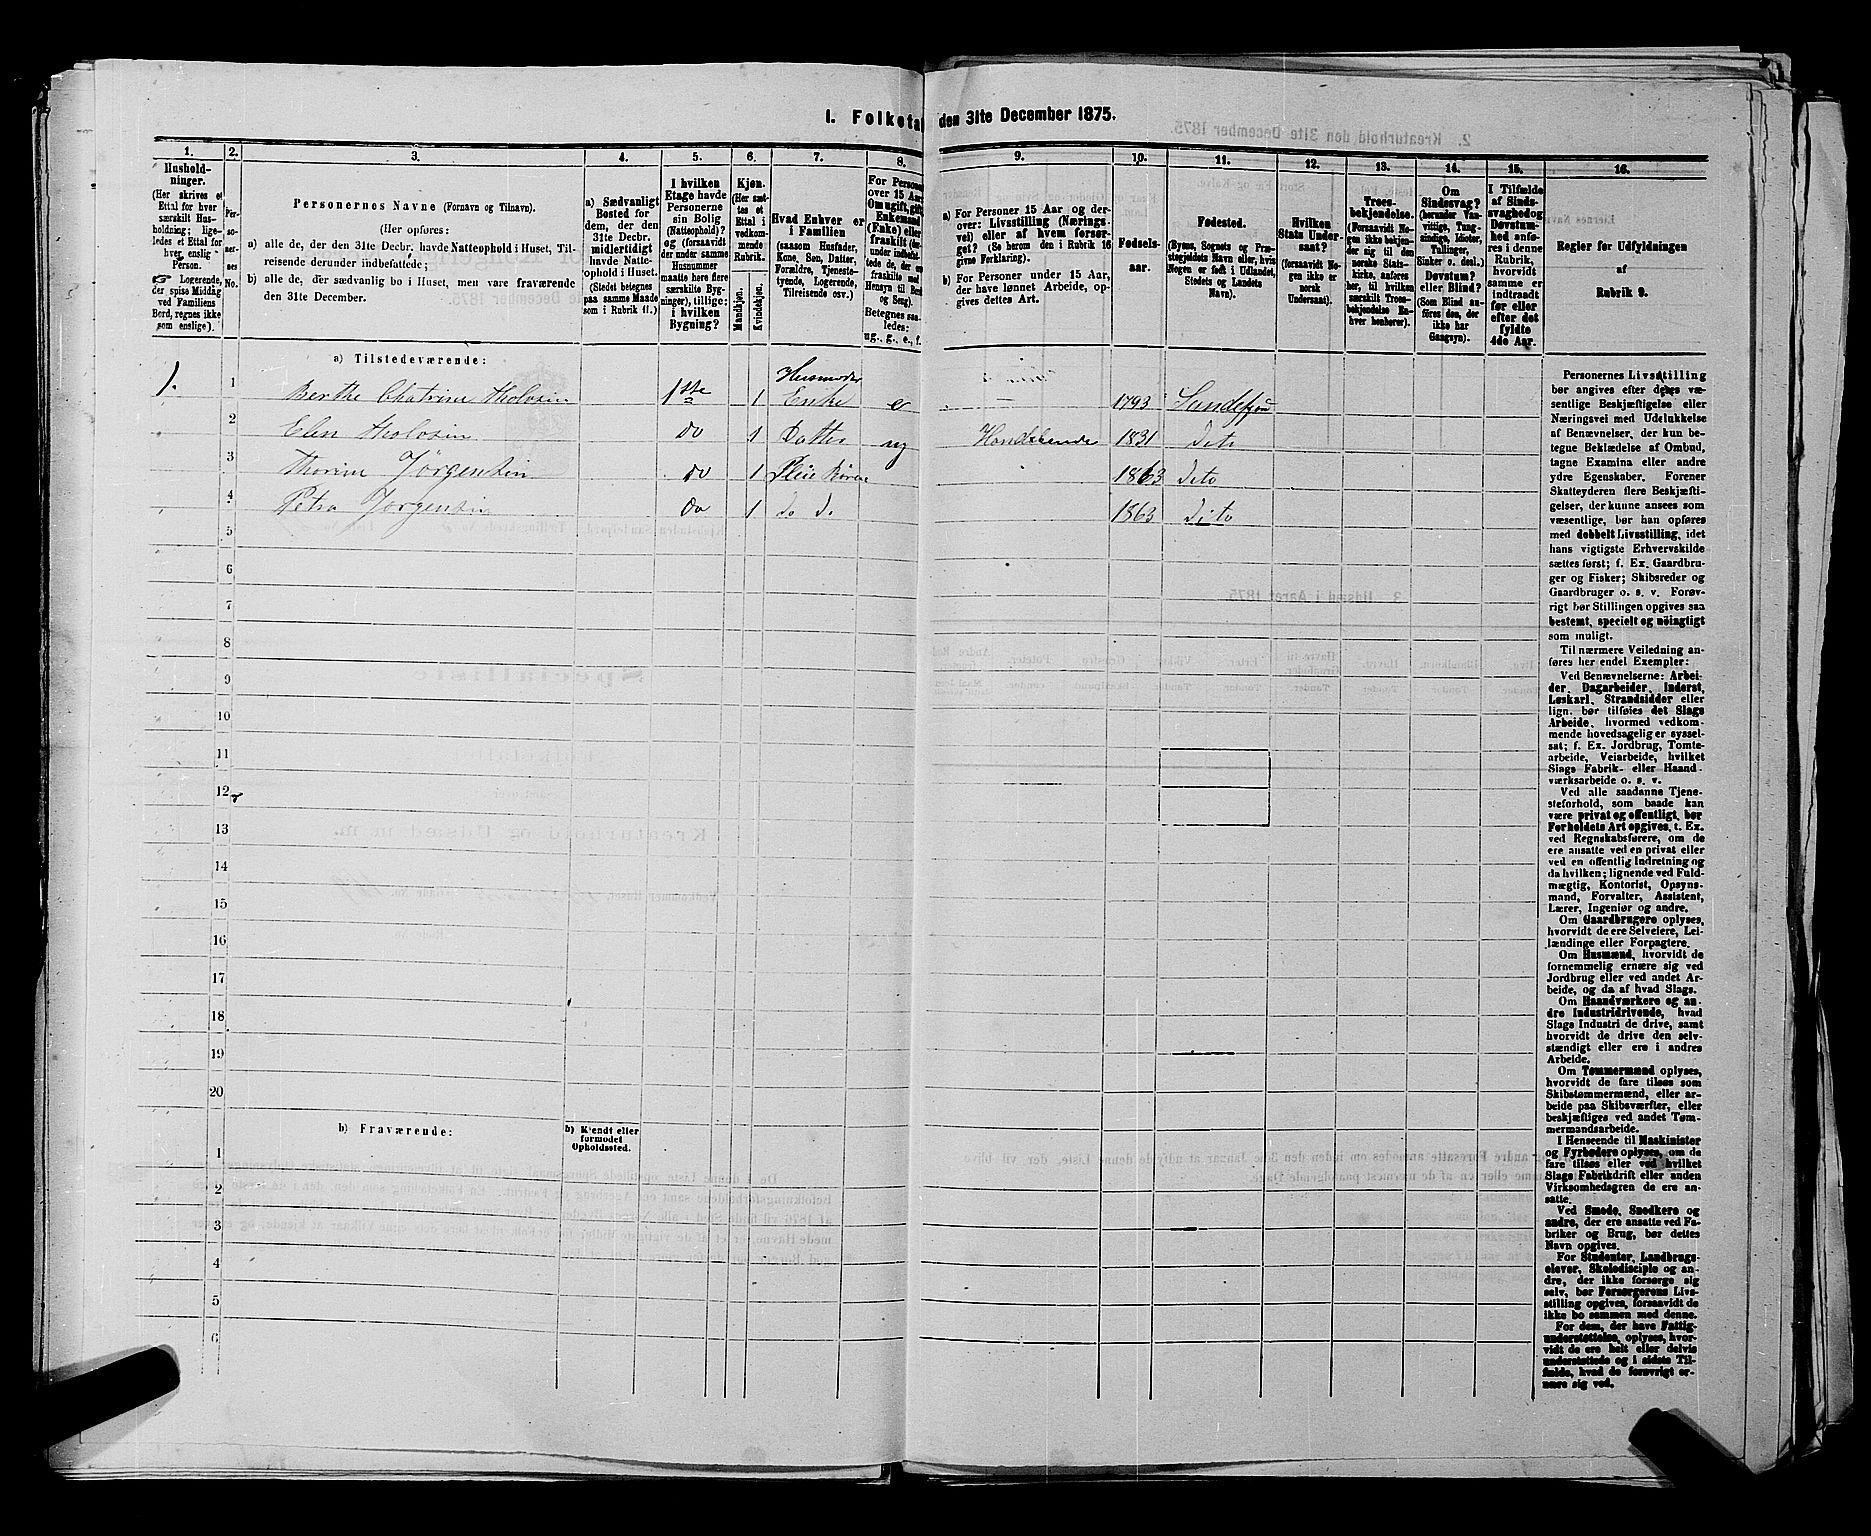 1. Folketal den 31te December 1875.
1. 2. 3. 4. 5. 6. 7. 8. 9. 10. 11. 12. 13. 14. 15. 16.
Hushold-
ninger.
(Her skrives et
Ettal for hver
særskilt Hus-
holdning; lige-
ledes et Ettal for
hver enslig
Person.
Logerende,
der spise Middag
ved Familiens
Bord, regnes ikke
som enslige).
Per-
so-
ner-
nes
No.
Personernes Navne (Fornavn og Tilnavn).
(Her opføres:
a) alle de, der den 31te Decbr. havde Natteophold i Huset, Til-
reisende derunder indbefattede;
b) alle de, der sædvanlig bo i Huset, men vare fraværende
den 31te December.
a) Sædvanligt
Bosted for
dem, der den
31te Decbr.
midlertidigt
havde Natte-
ophold i Huset.
(Stedet betegnes
paa samme Maade
som i Rubrik 11.)
I hvilken
Etage havde
Personerne
sin Bolig
(Natteophold)?
og (forsaavidt
der under samme
Husnummer
maatte here flere
særskilte Byg-
ninger), tillige:
i hvilken
Bygning?
Kjøn.
(Her sæt-
tes et
Ettal i
vedkom-
mende
Rubrik.
Mandkjøn.
Kvindekjøn.
Hvad Enhver er
i Familien
(saasom Husfader,
Kone, Søn, Datter,
Forældre, Tjeneste-
tyende, Logerende,
Tilreisende osv.)
For Personer
over 15 Aar:
Om ugift, gift,
Enkemand
(Enke) eller
fraskilt
Betegnes saa-
ledes:
ug., g., e., f.
a) For Personer 15 Aar og der-
over: Livsstilling (Nærings-
vei) eller af hvem forsør-
get? (Se herom den i Rubrik 16
givne Forklaring).
b) For Personer under 15 Aar,
der have lønnet Arbeide, op-
gives dettes Art.
Fødsels-
aar.
Fødested.
(Byens, Sognets og Præ-
stegjeldets Navn eller, hvis
Nogen er født i Udlandet,
Stedets og Landets
Navn).
Hvilken
Stats Under-
saat?
(forsaavidt No-
gen ikke er
norsk
Undersaat).
Troes-
bekjendelse.
(Forsaavidt No-
gen ikke bekjen-
der sig til den
norske Stats-
kirke, anføres
her, til hvilken
særskilt Troes-
bekjendelse En-
hver henhører).
Om
Sindssvag?
(herunder Van-
vittige, Tung-
sindige, Idioter,
Tullinger,
Sinker o. desl.)
Døvstum?
eller Blind?
(Som Blind an-
føres den, der
ikke har
Gangsyn).
I Tilfælde
af Sinds-
svaghed og
Døvstum-
hed anfø-
res i denne
Rubrik,
hvorvidt
samme er
indtraadt
før eller
efter det
fyldte
4de Aar.
Regler for Udfyldningen
af
Rubrik 9.
a) Tilstedeværende:
1. 1 Berthe Chatrine 1ste 1 Husmoder Enke e 1793 Sandefjord
2 Elen do 1 Datter ug 1831 dito
3 Thorine Jörgensen do 1 1863 dito
4 Petra Jörgensen do 1 do do 1863 dito
5
6
7
8
9
10
11
12
13
14
15
16
17
18
19
20
b) Fraværende:
b) Kjendt eller
formodet
Opholdssted.
1
2
3
4
5
6
Personernes Livsstilling
bør angives efter deres væ-
sentlige Beskjæftigelse eller
Næringsvei med Udelukkelse
af Benævnelser, der kun be-
tegne Beklædelse af Ombud,
tagne Examina eller andre
ydre Egenskaber. Forener
Skatteyderen flere Beskjæfti-
gelser, der kunne ansees som
væsentlige, bør han opføres
med dobbelt Livsstilling, idet
hans vigtigste Erhvervskilde
sættes først; f. Ex. Gaardbru-
ger og Fisker; Skibsreder og
Gaardbruger o. s. v. Forøv-
rigt bør Stillingen opgives saa
bestemt, specielt og nöiagtigt
som muligt.
Til nærmere Veiledning an-
føres her endel Exempler:
Ved Benævnelserne: Arbei-
der, Dagarbeider, Inderst,
Løskarl, Strandsidder eller
lign. bør tilføies det Slags
Arbeide, hvormed vedkom-
mende hovedsagelig er syssel-
sat; f. Ex. Jordbrug, Tomte-
arbeide, Veiarbeide, hvilket
Slags Fabrik- eller Haand-
værksarbeide o. s. v.
Ved alle saadanne Tjene-
steforhold, som baade kan
være privat og offentligt, bør
Forholdets Art opgives, t. Ex.
ved Regnskabsførere, om de
ere ansatte ved en privat eller
ved en offentlig Indretning og
da hvilken; lignende ved Fuld-
mægtig, Kontorist, Opsyns-
mand, Forvalter, Assistent,
Lærer, Ingeniør og andre.
Om Gaardbrugere oplyses,
hvorvidt de ere Selveiere, Lei-
lændinge eller Forpagtere.
Om Husmænd, hvorvidt de
fornemmelig ernære sig ved
Jordbrug eller ved andet Ar-
beide, og da af hvad Slags.
Om Haandværkere og an-
dre Industridrivende, hvad
Slags Industri de drive, samt
hvorvidt de drive den selv-
stændigt eller ere i andres
Arbeide.
Om Tømmermænd oplyses,
hvorvidt de fare tilsøs som
Skibstømmermænd, eller ar-
beide paa Skibsværfter, eller
beskjæftiges ved andet Tøm-
mermandsarbeide.
I Henseende til Maskinister
og Fyrbødere oplyses, om de
fare tilsøs eller ved hvilket
Slags Fabrikdrift eller anden
Virksomhedsgren de ere an-
satte.
Ved Smede, Snedkere og
andre, der ere ansatte ved Fa-
briker og Brug, bør dettes
Navn opgives.
For Studenter, Landbrugs-
elever, Skoledisciple og an-
dre, der ikke forsørge sig
selv, bør Forsørgerens Livs-
stilling opgives, forsaavidt de
ikke bo sammen med denne.
For dem, der have Fattig-
understøttelse, oplyses, hvor-
vidt de ere helt eller delvis
understøttede og i sidste Til-
fælde, hvad de forøvrigt er-
nære sig ved.